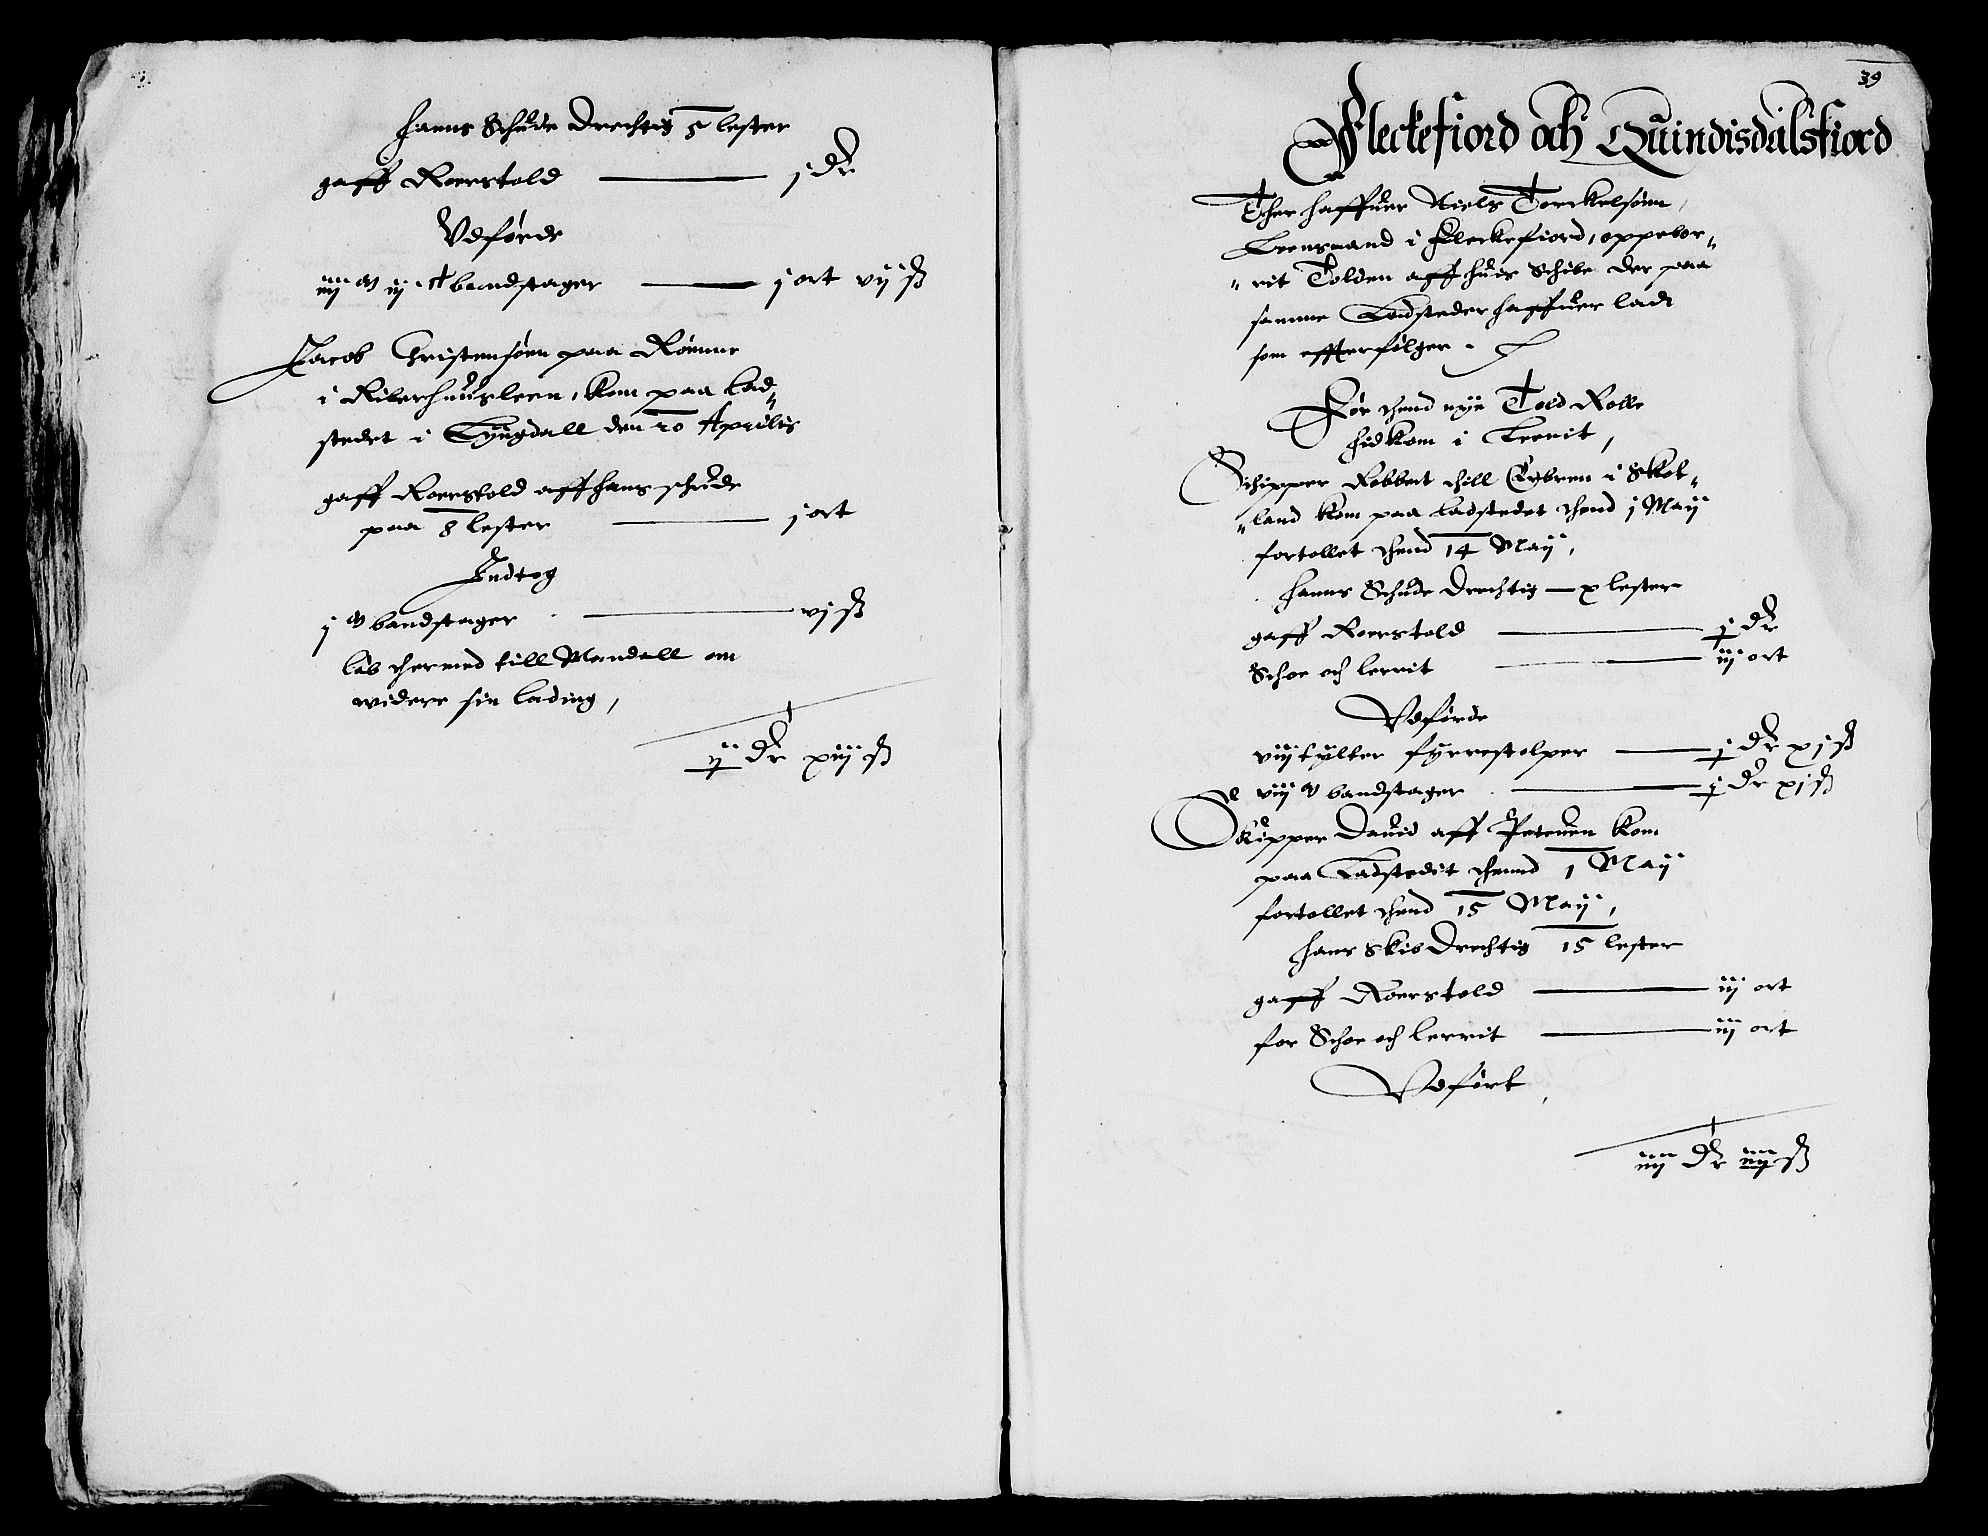 hanns Schude drechtig 5 lester
gaff Roerstold j dr
Vdførde
iiij iij bandstager j ort vij ß
Jacob Christensøen paa Rømme
i Riberhuusleen, kom paa lad„
stedet i Lyngdall den 20 Aprilis
gaff Roerstold aff hans schude
paa 8 lester j ort
Indtog
j bandstager vj ß
løb thermed till Mandall om
widere sin lading,
ij dr xiij ß
39
Fleckefiord och Quindisdalsfiord
Ther haffuer Niels Torckelsøen,
Leensmand i Fleckefiord, oppebor„
„rit Tolden aff huis Schibe der paa
samme Ladsteder haffuer ladt
som effterfølger.
Før thend nye Told Rolle
hid kom i Leenit,
Schipper Robbert till i Skot„
„land kom paa ladstedet thend j Maij
fortollet thend 14 Maij,
hanns Schude drechtig x lester
gaff Roerstold j dr
Schoe och lerrit iij ort
Vdførde
viij tylter fyrrestolper j dr xj ß
viij bandstager j dr xj ß
Skipper Dauid aff kom
paa Ladstedit thennd 1 Maij
fortollet thend 15 Maij,
hans Skib drechtig 15 lester
gaff Roerstold iij ort
for Schoe och lerrit iij ort
Vdført
iiij dr iiij ß